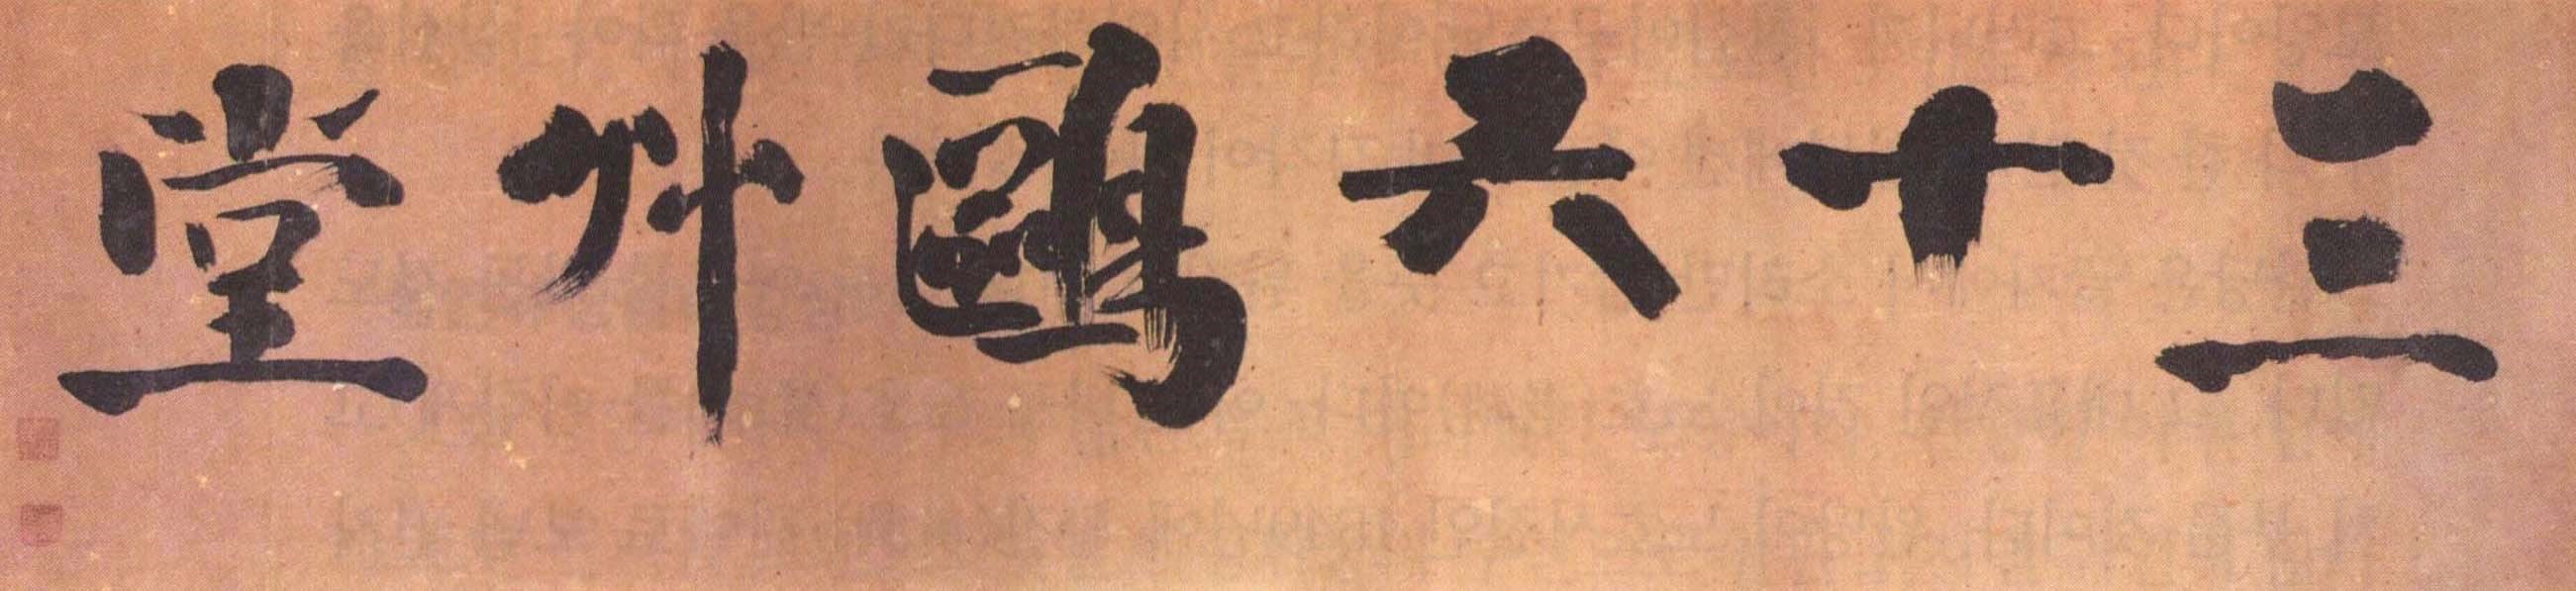 三十六鷗艸堂